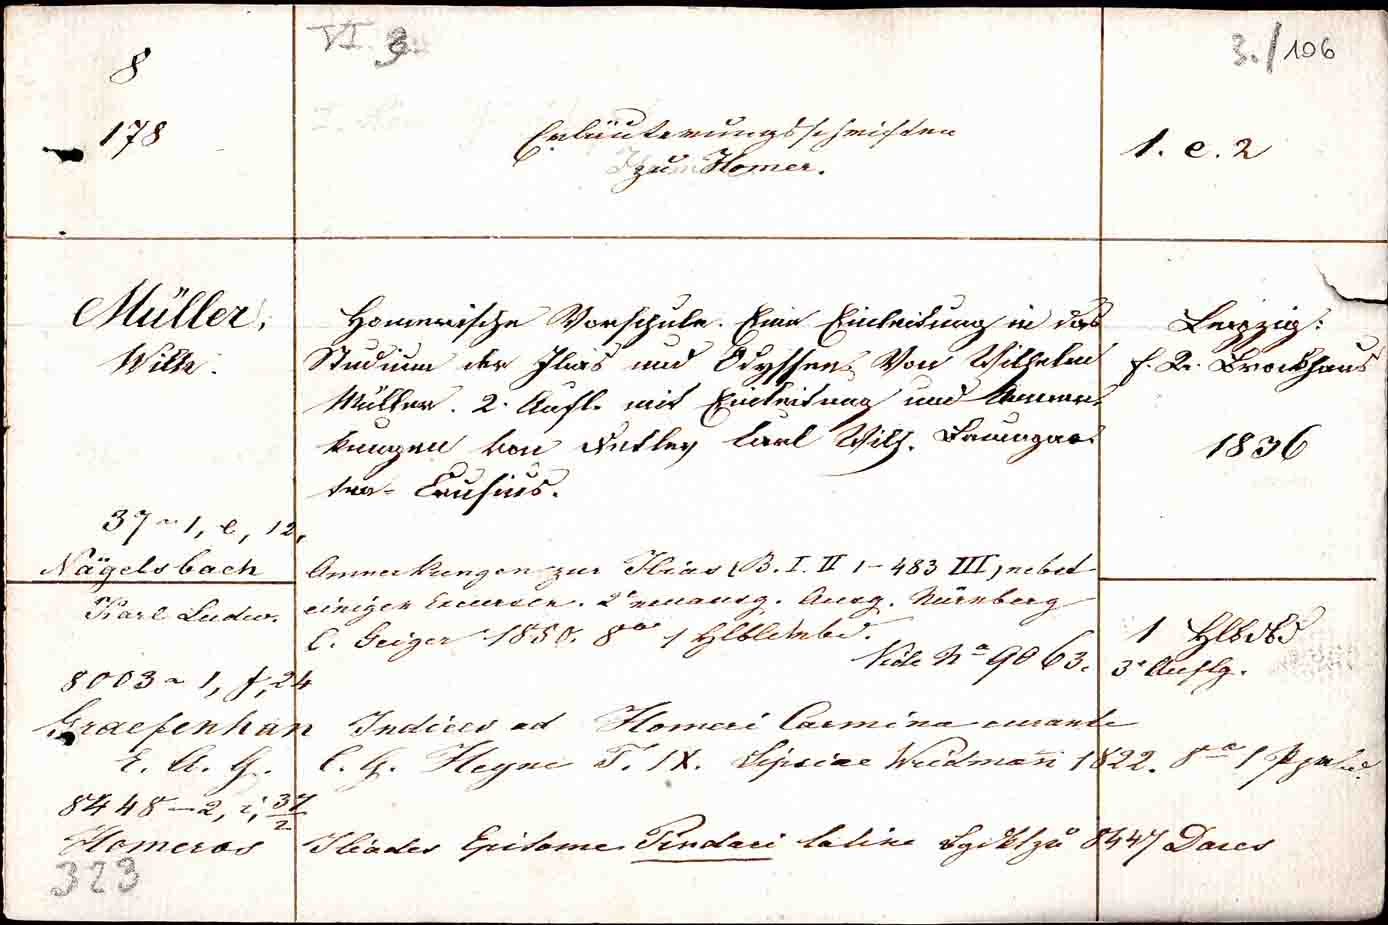 8
VI. 3.
3./106
178
Erläuterungsschriften
zu Homer.
1. e. 2
Müller,
Wilh.
Homerische Vorschule. Eine Einleitung in das
Studium der Ilias und Odyssee. Von Wilhelm
Müller. 2. Aufl. mit Einleitung und Anmer-
kungen von Detlev Carl Wilh. Baumgar-
ten-Crusius.
Leipzig:
F. A. Brockhaus
1836
37 ~ 1, e, 12,
Nägelsbach
Karl Ludw.
Anmerkungen zur Ilias (B. I. II 1-483 III) nebst
einigen Excursen. 2e Ausg. Nürnberg
C. Geiger 1850. 8° 1
Vide No 9063.
1 Hlbbd
3e Auflg.
8003 ~ 1, f, 24
Graefenhan
E. A. G.
Indices ad Homeri Carmina curante
C. G. Heyne T. IX. Lipsiae Weidmann 1822. 8° 1
8448 - 2, i, 37/2
Homeros
Iliados Epitome Pindari latine 8447 Dares
323